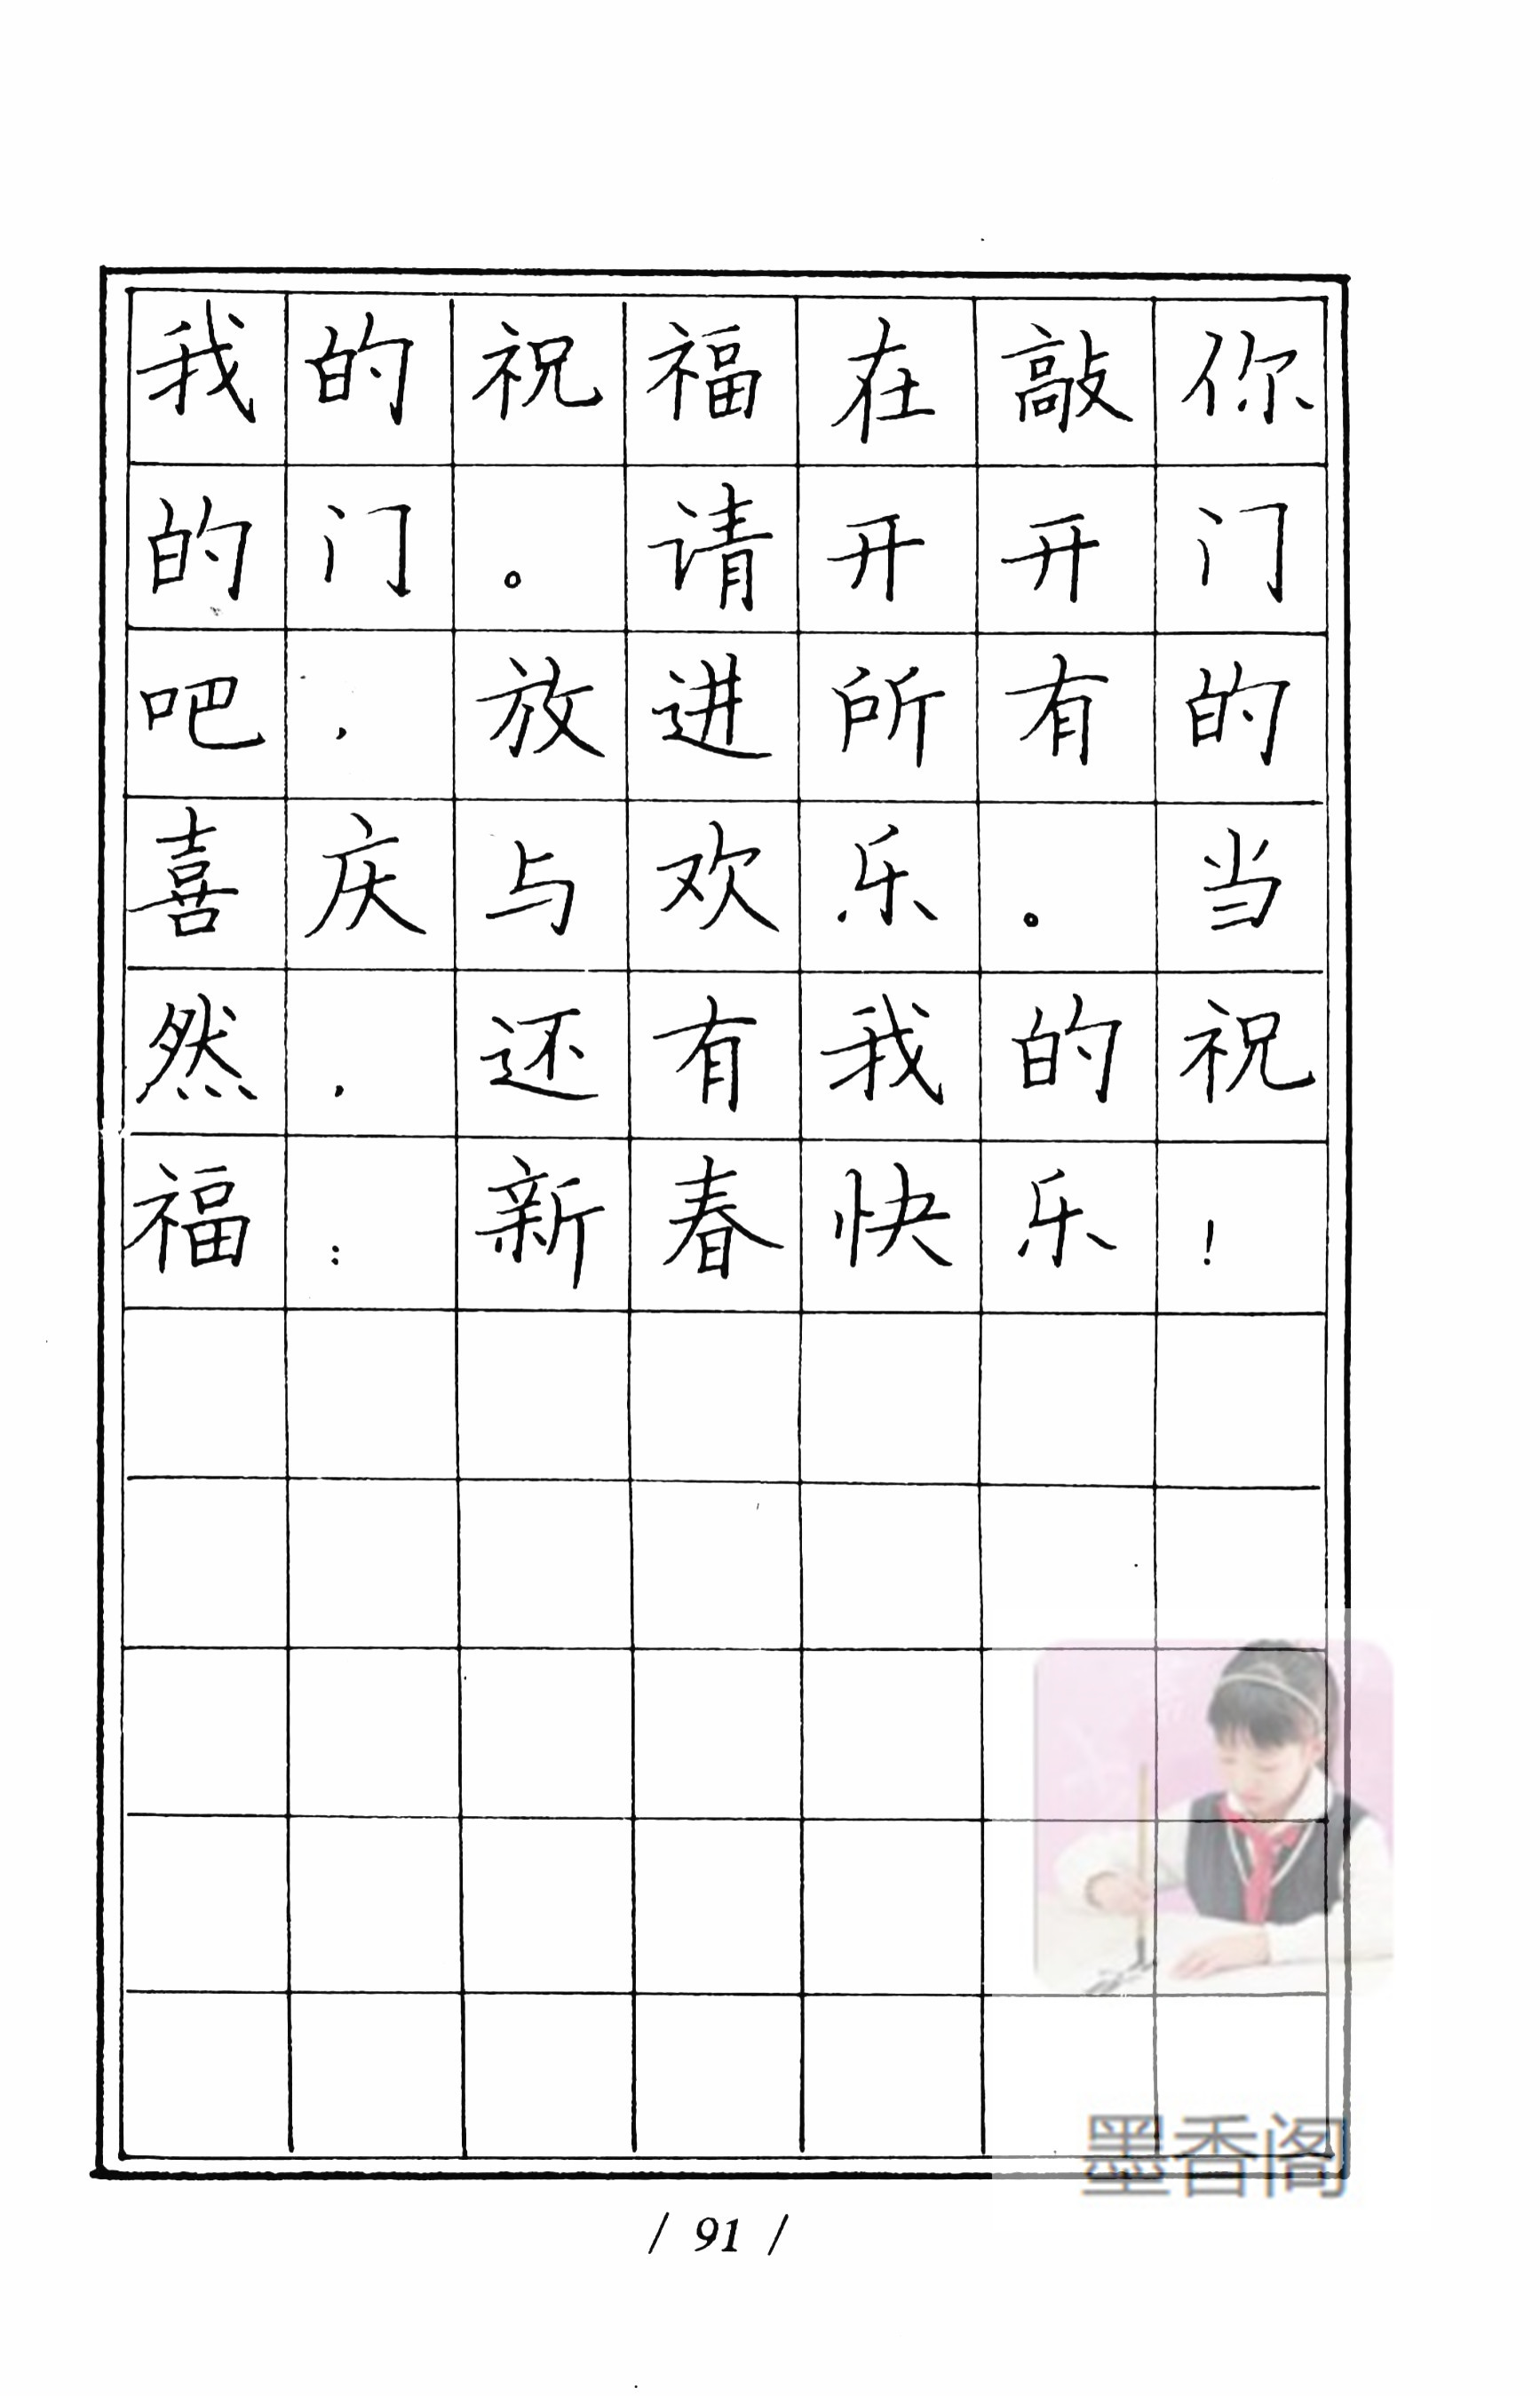 我的祝福在敲你
的门。请开开门
吧，放进所有的
喜庆与欢乐。当
然，还有我的祝
福：新春快乐！
墨香阁
/ 91 /